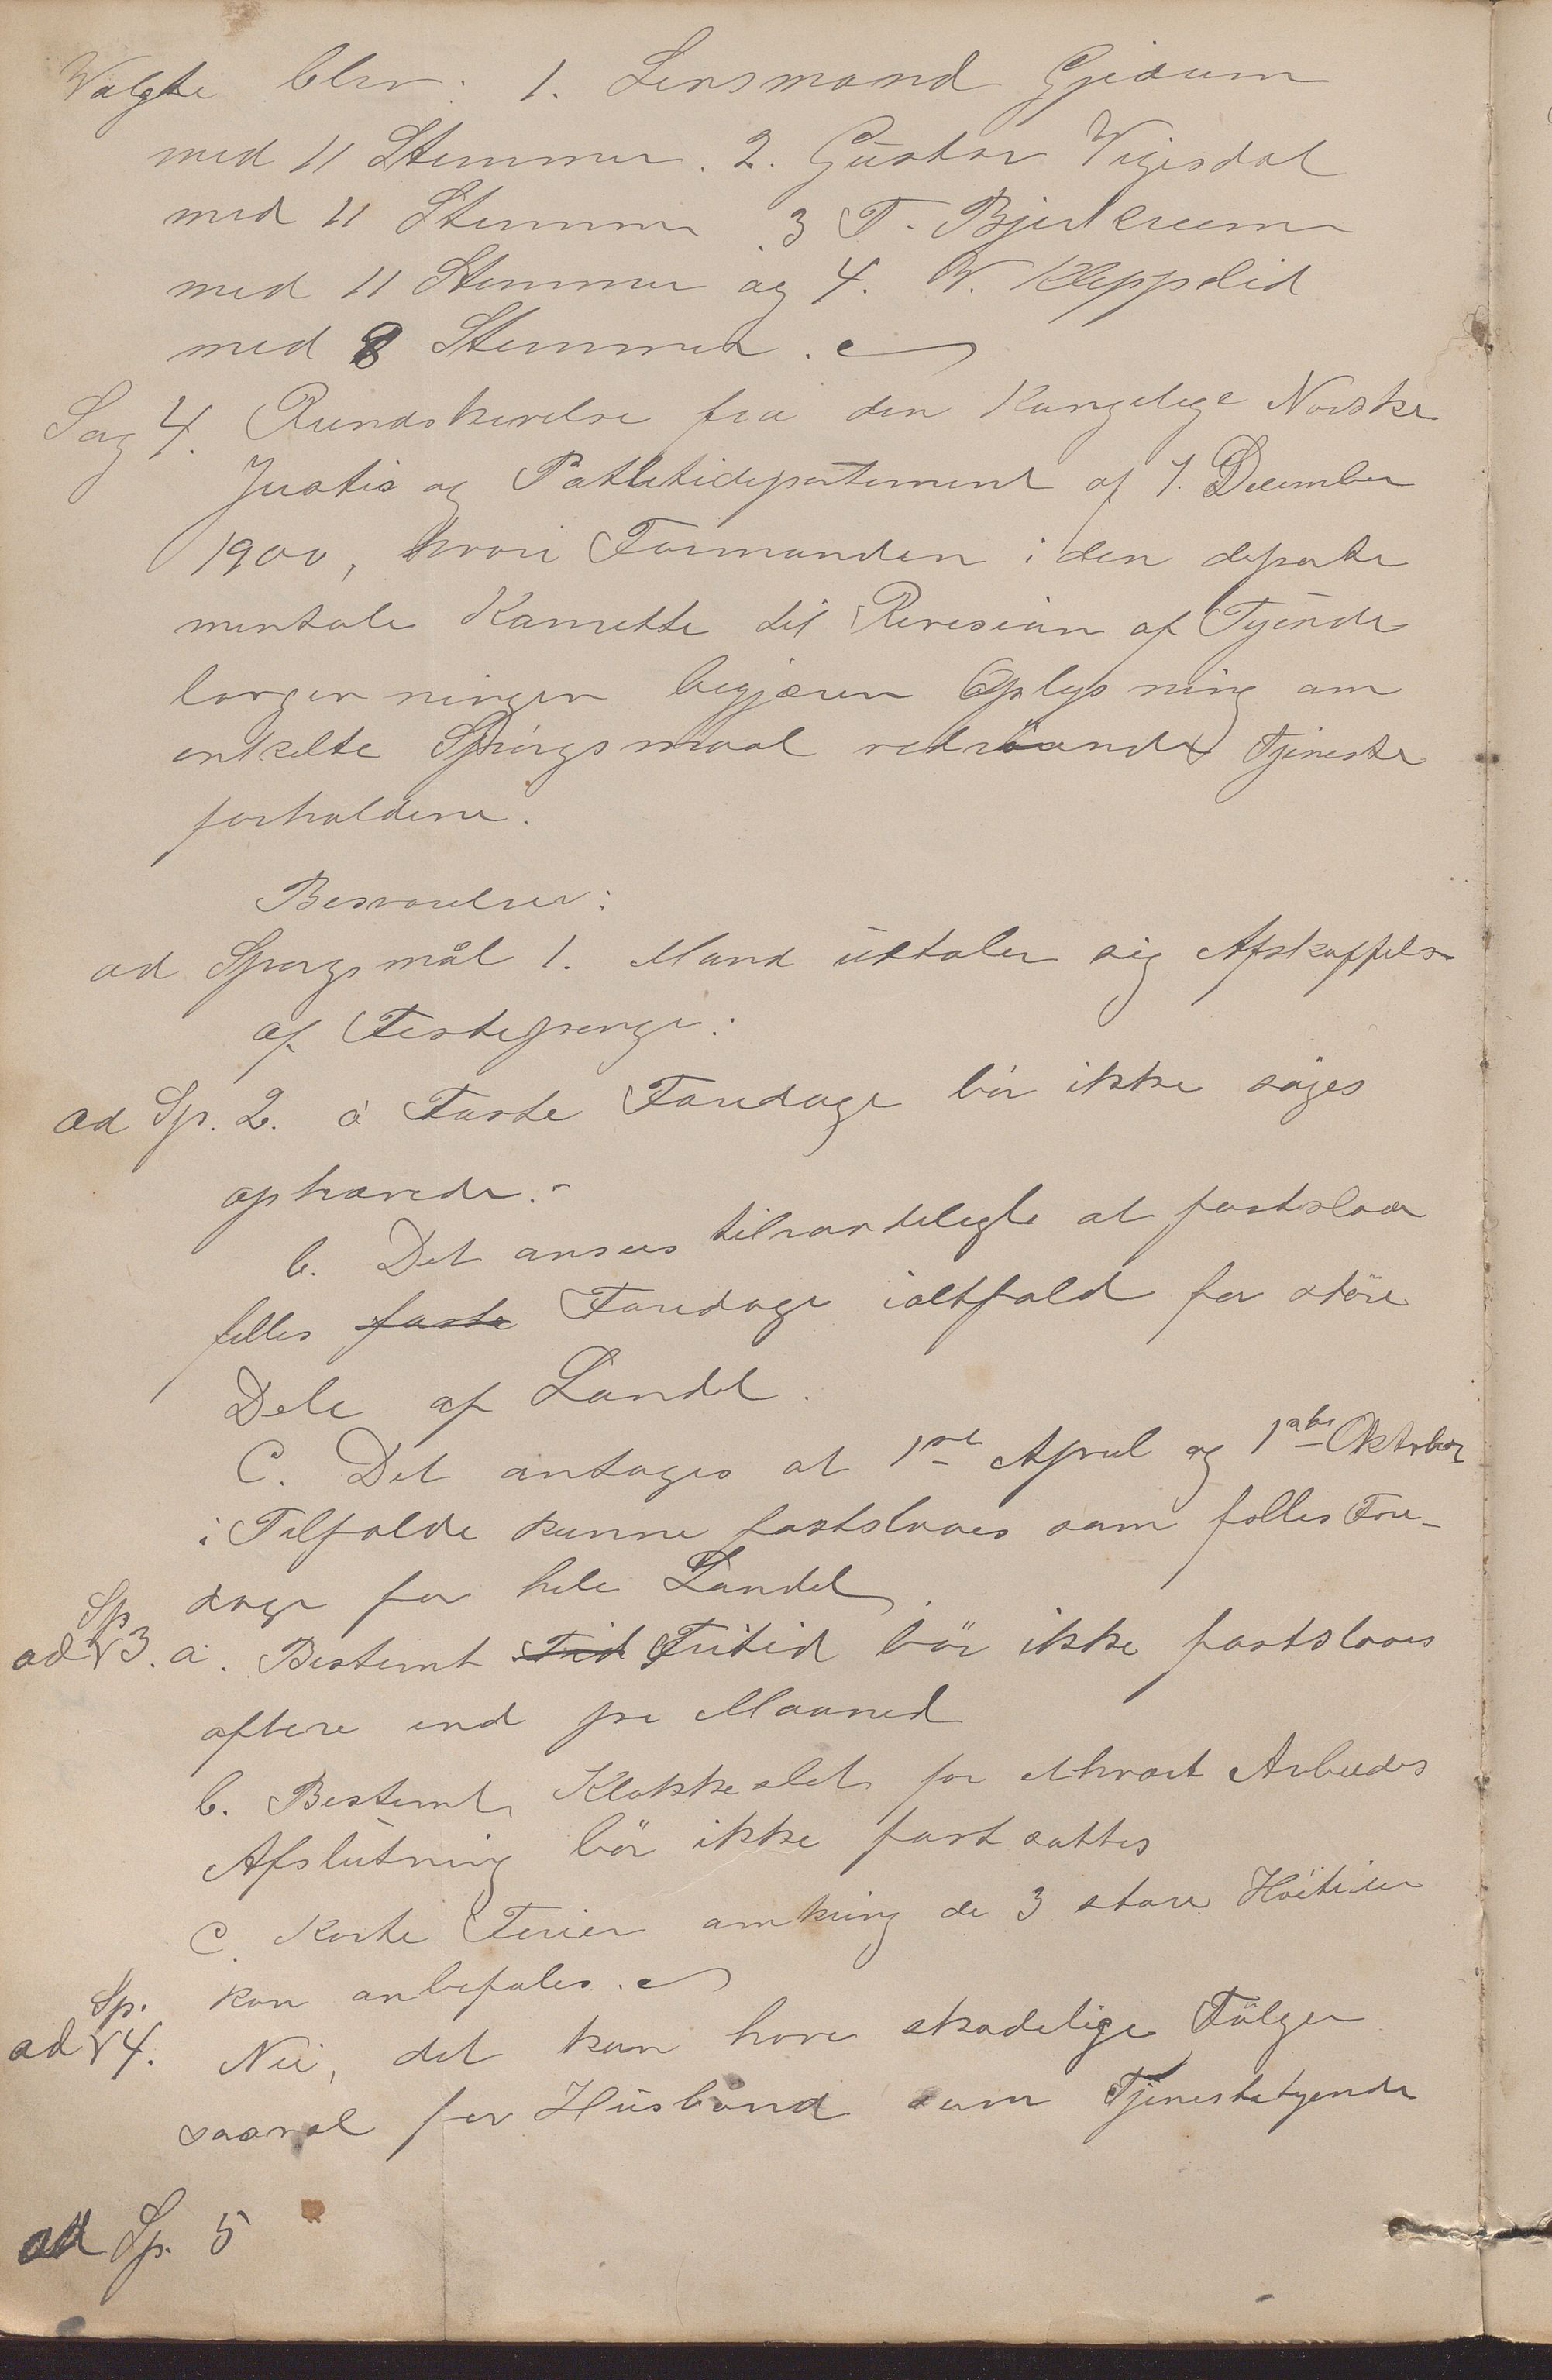 Valgte blev: 1. Lensmand Gjedrem
med 11 Stemmer. 2. Gustav Vigesdal
med 11 Stemmer 3 T. Bjerkreim
med 11 Stemmer og 4. V. Kleppelid
med 8 Stemmer.
Sag 4. Rundskrivelse fra den Kongelige Norske
Justis og Politidepartement af 7. December
1900, hvori Formanden i den departe
mentale Komite til Revesion af Tyende
lovgivningen begjærer Oplysning om
enkelte Spörgsmaal vedrörande Tjeneste
forholdene.
Besvarelser:
ad Sporgsmål 1. Mand üdtaler sig Afskaffelse
af Festepenge.
ad Sp. 2. a Faste Faredage bör ikke söges
ophævede.-
b. Det ansees tilraadeligt at fastslaa
felles faste Faredage ialtfald for störe
Dele af Landet.
C. Det antages at 1ste April og 1ste Oktober
i Tilfælde kunne fastslaaes som fælles Fare-
dage for hele Landet.
ad Sp 3. a. Bestemt Frid Fritid bör ikke fastslaaes
oftere end pr Maaned
b. Bestemt Klokkeslet for ethvert Arbeides
Afslütning bör ikke fastsættes
C. Korte Ferier omkring de 3 store Höitider
kan anbefales.
ad Sp. 4. Nei, det kan have skadelige Fölger
saavel for Hüsbond som Tjenestetyende
ad Sp. 5